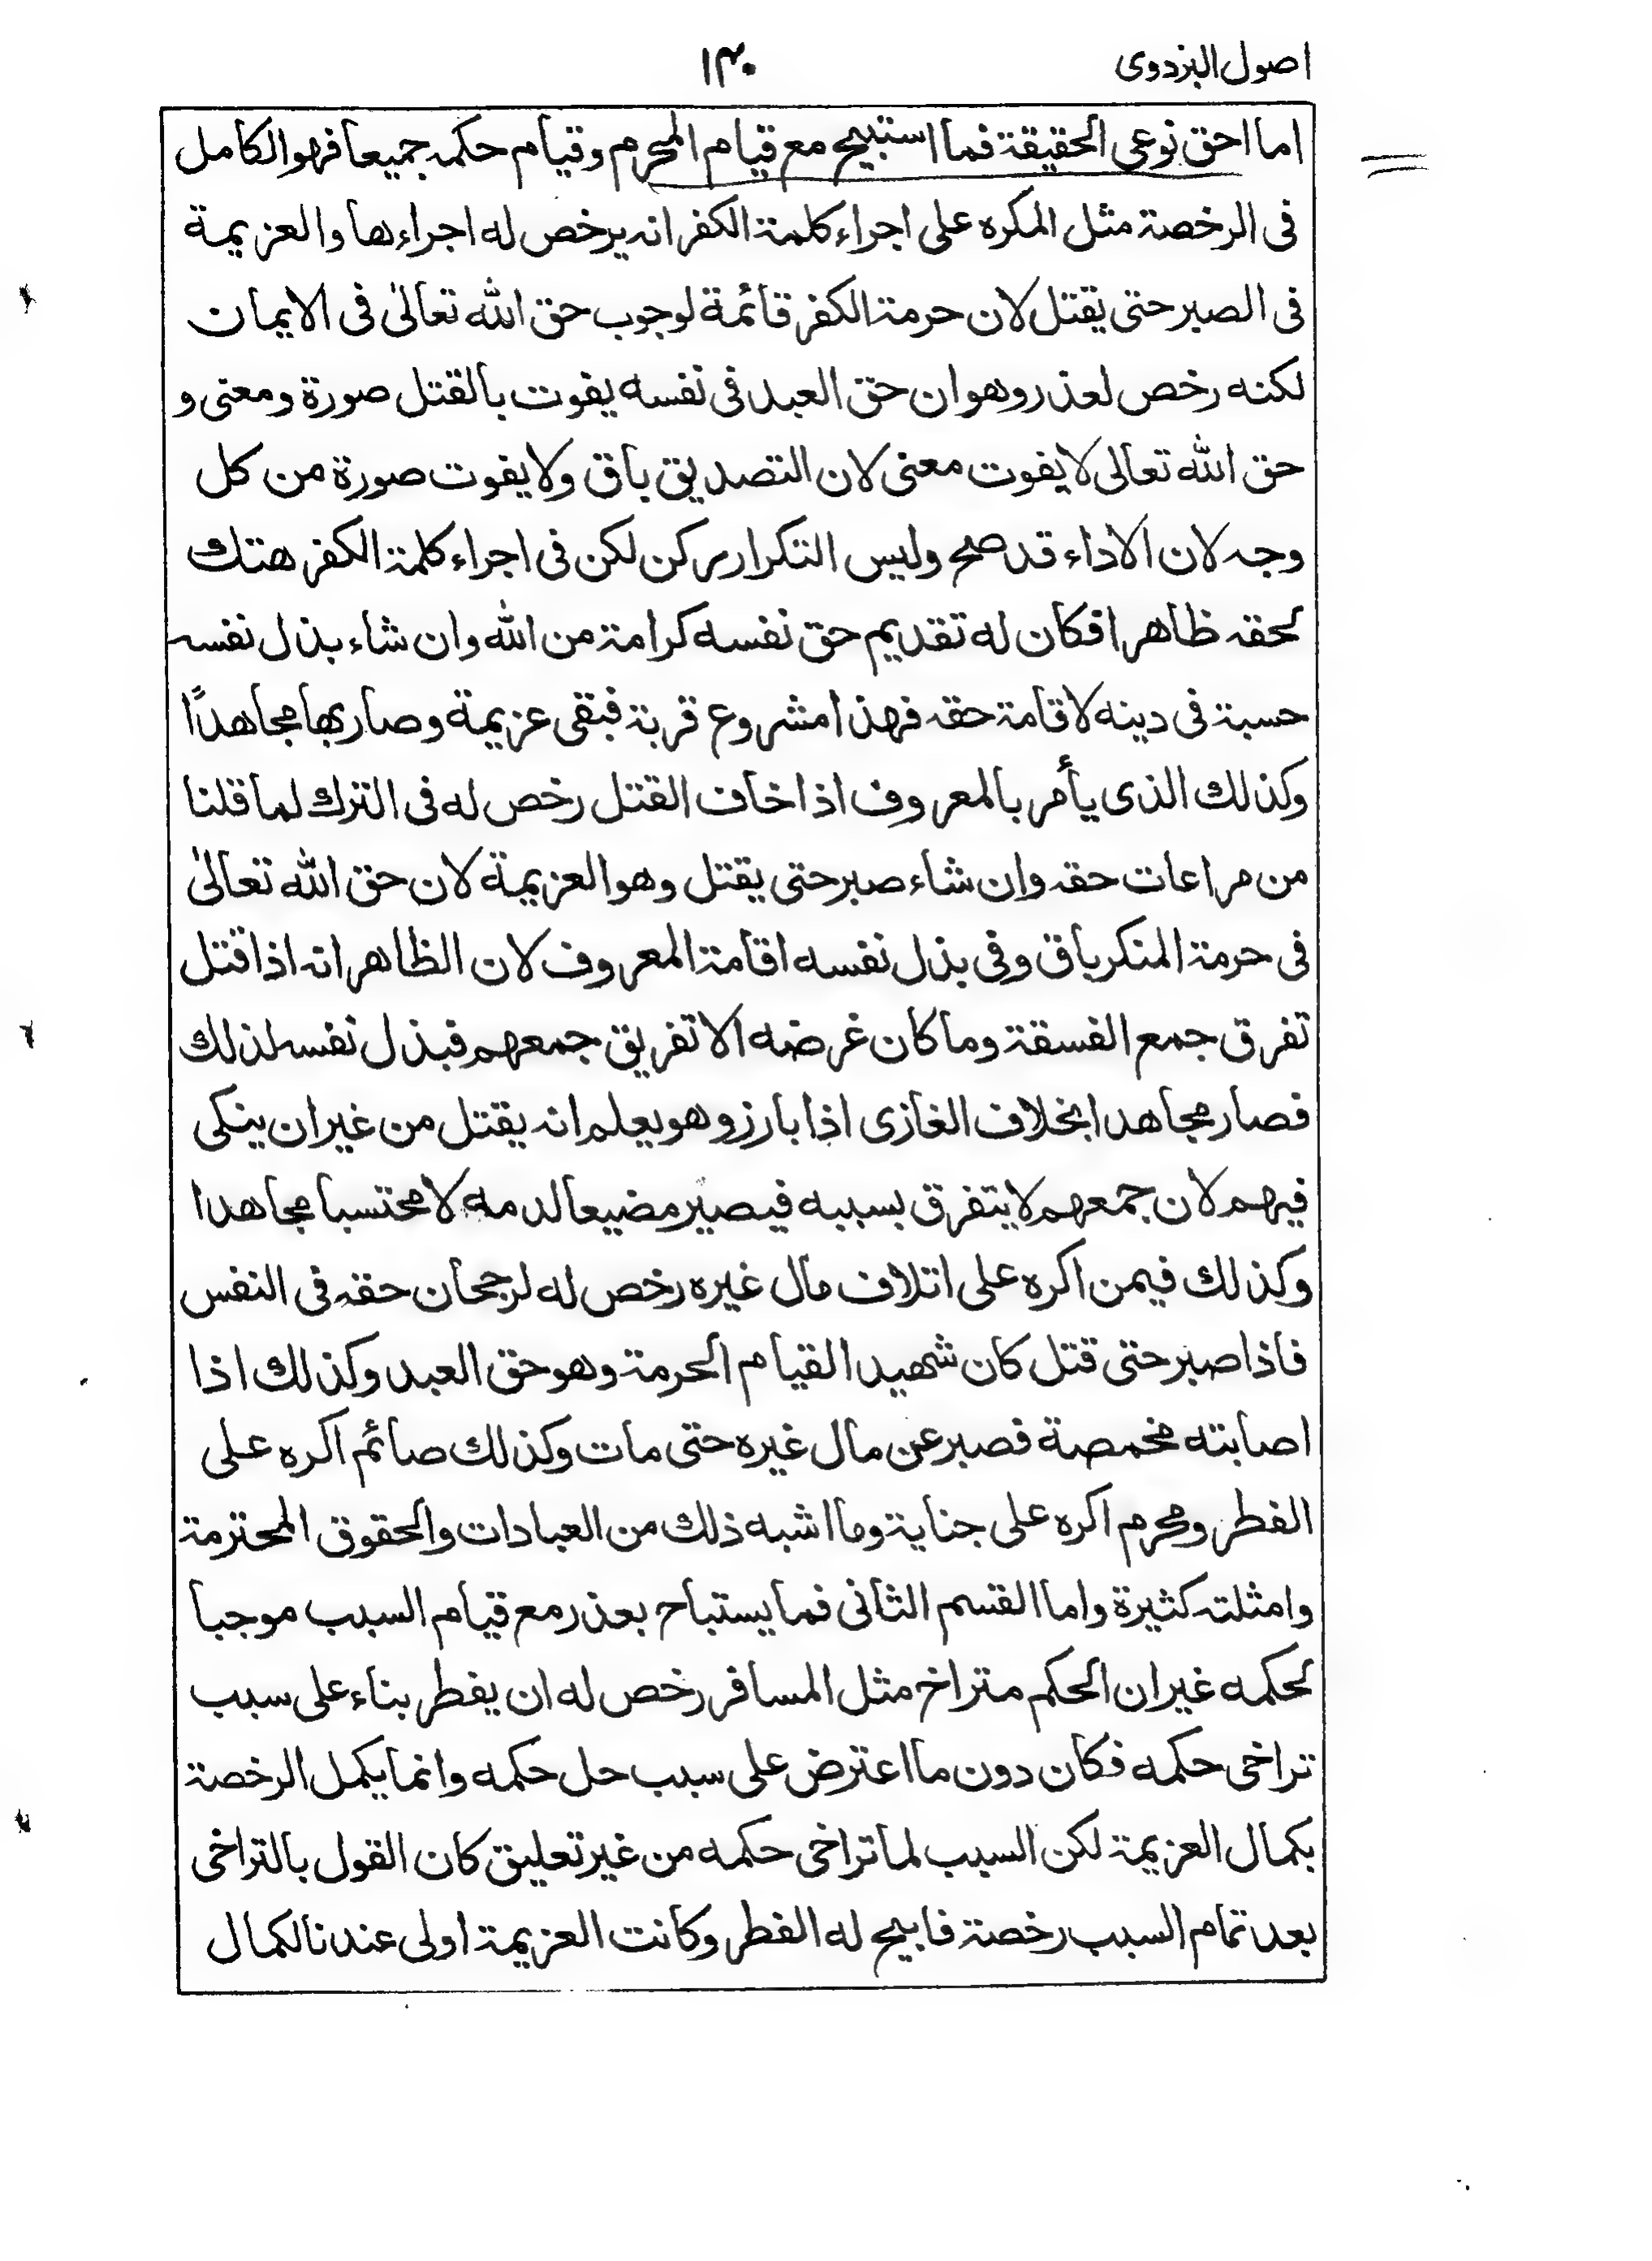 اصول البزدوی
۱۴۰
اما احق نوعي الحقيقة فما استبيح مع قيام المحرم وقيام حكمه جميعا فهو الكامل
فی الرخصة مثل المكره علی اجراء كلمة الكفر انه يرخص له اجراءها والعزيمة
فی الصبر حتی يقتل لان حرمة الكفر قائمة لوجوب حق الله تعالیٰ فی الايمان
لكنه رخص لعذر وهو ان حق العبد فی نفسه يفوت بالقتل صورة ومعنی و
حق الله تعالی لا يفوت معنی لان التصديق باق ولا يفوت صورة من كل
وجه لان الاداء قد صح وليس التكرار بركن لكن فی اجراء كلمة الكفر هتك
لحقه ظاهرا فكان له تقديم حق نفسه كرامة من الله وان شاء بذل نفسه
حسبة فی دينه لاقامة حقه فهذا مشروع قربة فبقی عزيمة وصار بها مجاهدًا
وكذلك الذی يأمر بالمعروف اذا خاف القتل رخص له فی الترك لما قلنا
من مراعات حقه وان شاء صبر حتی يقتل وهو العزيمة لان حق الله تعالیٰ
فی حرمة المنكر باق وفی بذل نفسه اقامة المعروف لان الظاهر انه اذا قتل
تفرق جمع الفسقة وما كان غرضه الا تفريق جمعهم فبذل نفسه لذلك
فصار مجاهدا بخلاف الغازی اذا بارز وهو يعلم انه يقتل من غير ان ينكی
فيهم لان جمعهم لا يتفرق بسببه فيصير مضيعا لدمه لا محتسبا مجاهدا
وكذلك فيمن اكره علی اتلاف مال غيره رخص له لرجحان حقه فی النفس
فاذا صبر حتی قتل كان شهيدا لقيام الحرمة وهو حق العبد وكذلك اذا
اصابته مخمصة فصبر عن مال غيره حتی مات وكذلك صائم اكره علی
الفطر ومحرم اكره علی جناية وما اشبه ذلك من العبادات والحقوق المحترمة
وامثلته كثيرة واما القسم الثانی فما يستباح بعذر مع قيام السبب موجبا
لحكمه غير ان الحكم متراخ مثل المسافر رخص له ان يفطر بناء علی سبب
تراخی حكمه فكان دون ما اعترض علی سبب حل حكمه وانما يكمل الرخصة
بكمال العزيمة لكن السبب لما تراخی حكمه من غير تعليق كان القول بالتراخی
بعد تمام السبب رخصة فابيح له الفطر وكانت العزيمة اولی عندنا لكمال